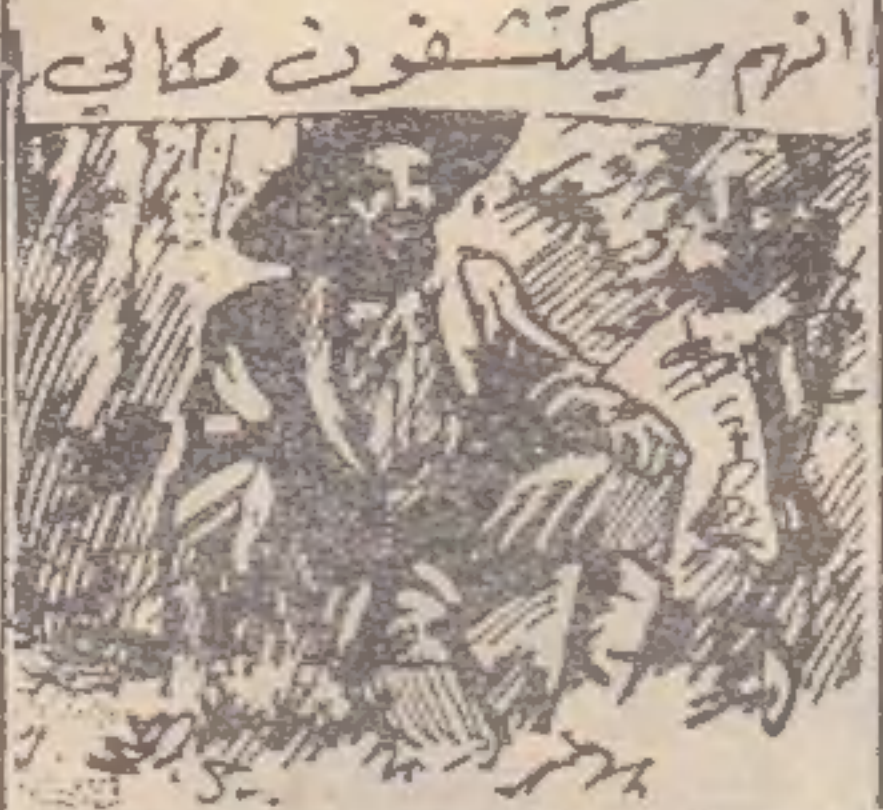 انهم سيكتشفون مكاني